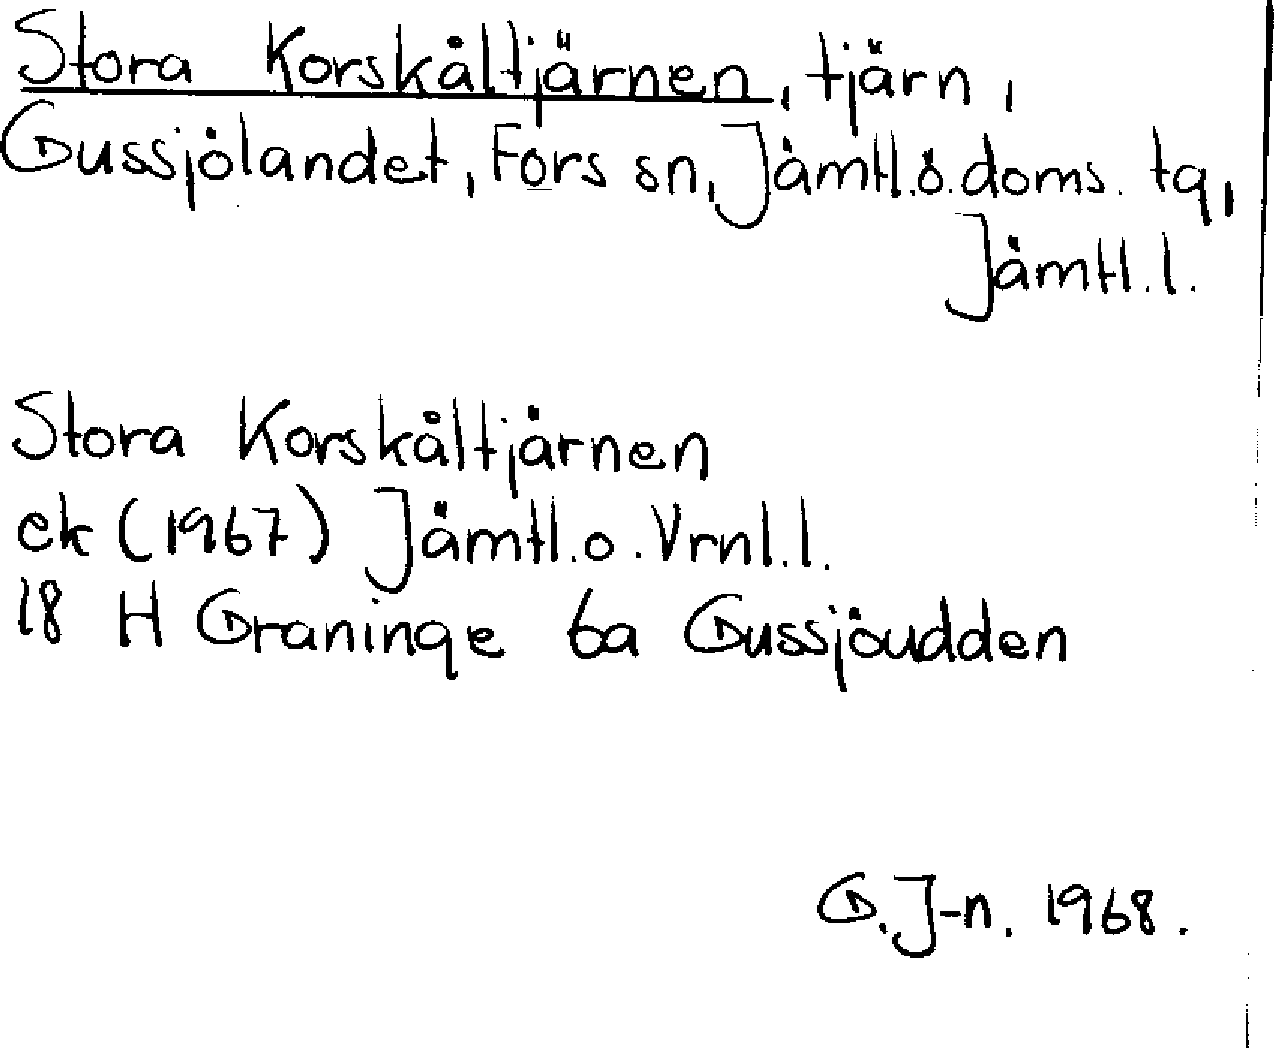 Stora Korskåltjärnen, tjärn,
Gussjölandet, Fors sn, Jämtl.ö.doms. tg,
Jämtl.l.
Stora Korskåltjärnen
ek (1967) Jämtl.o.Vrnl.l.
18 H Graninge 6a Gussjöudden
G.J-n. 1968.